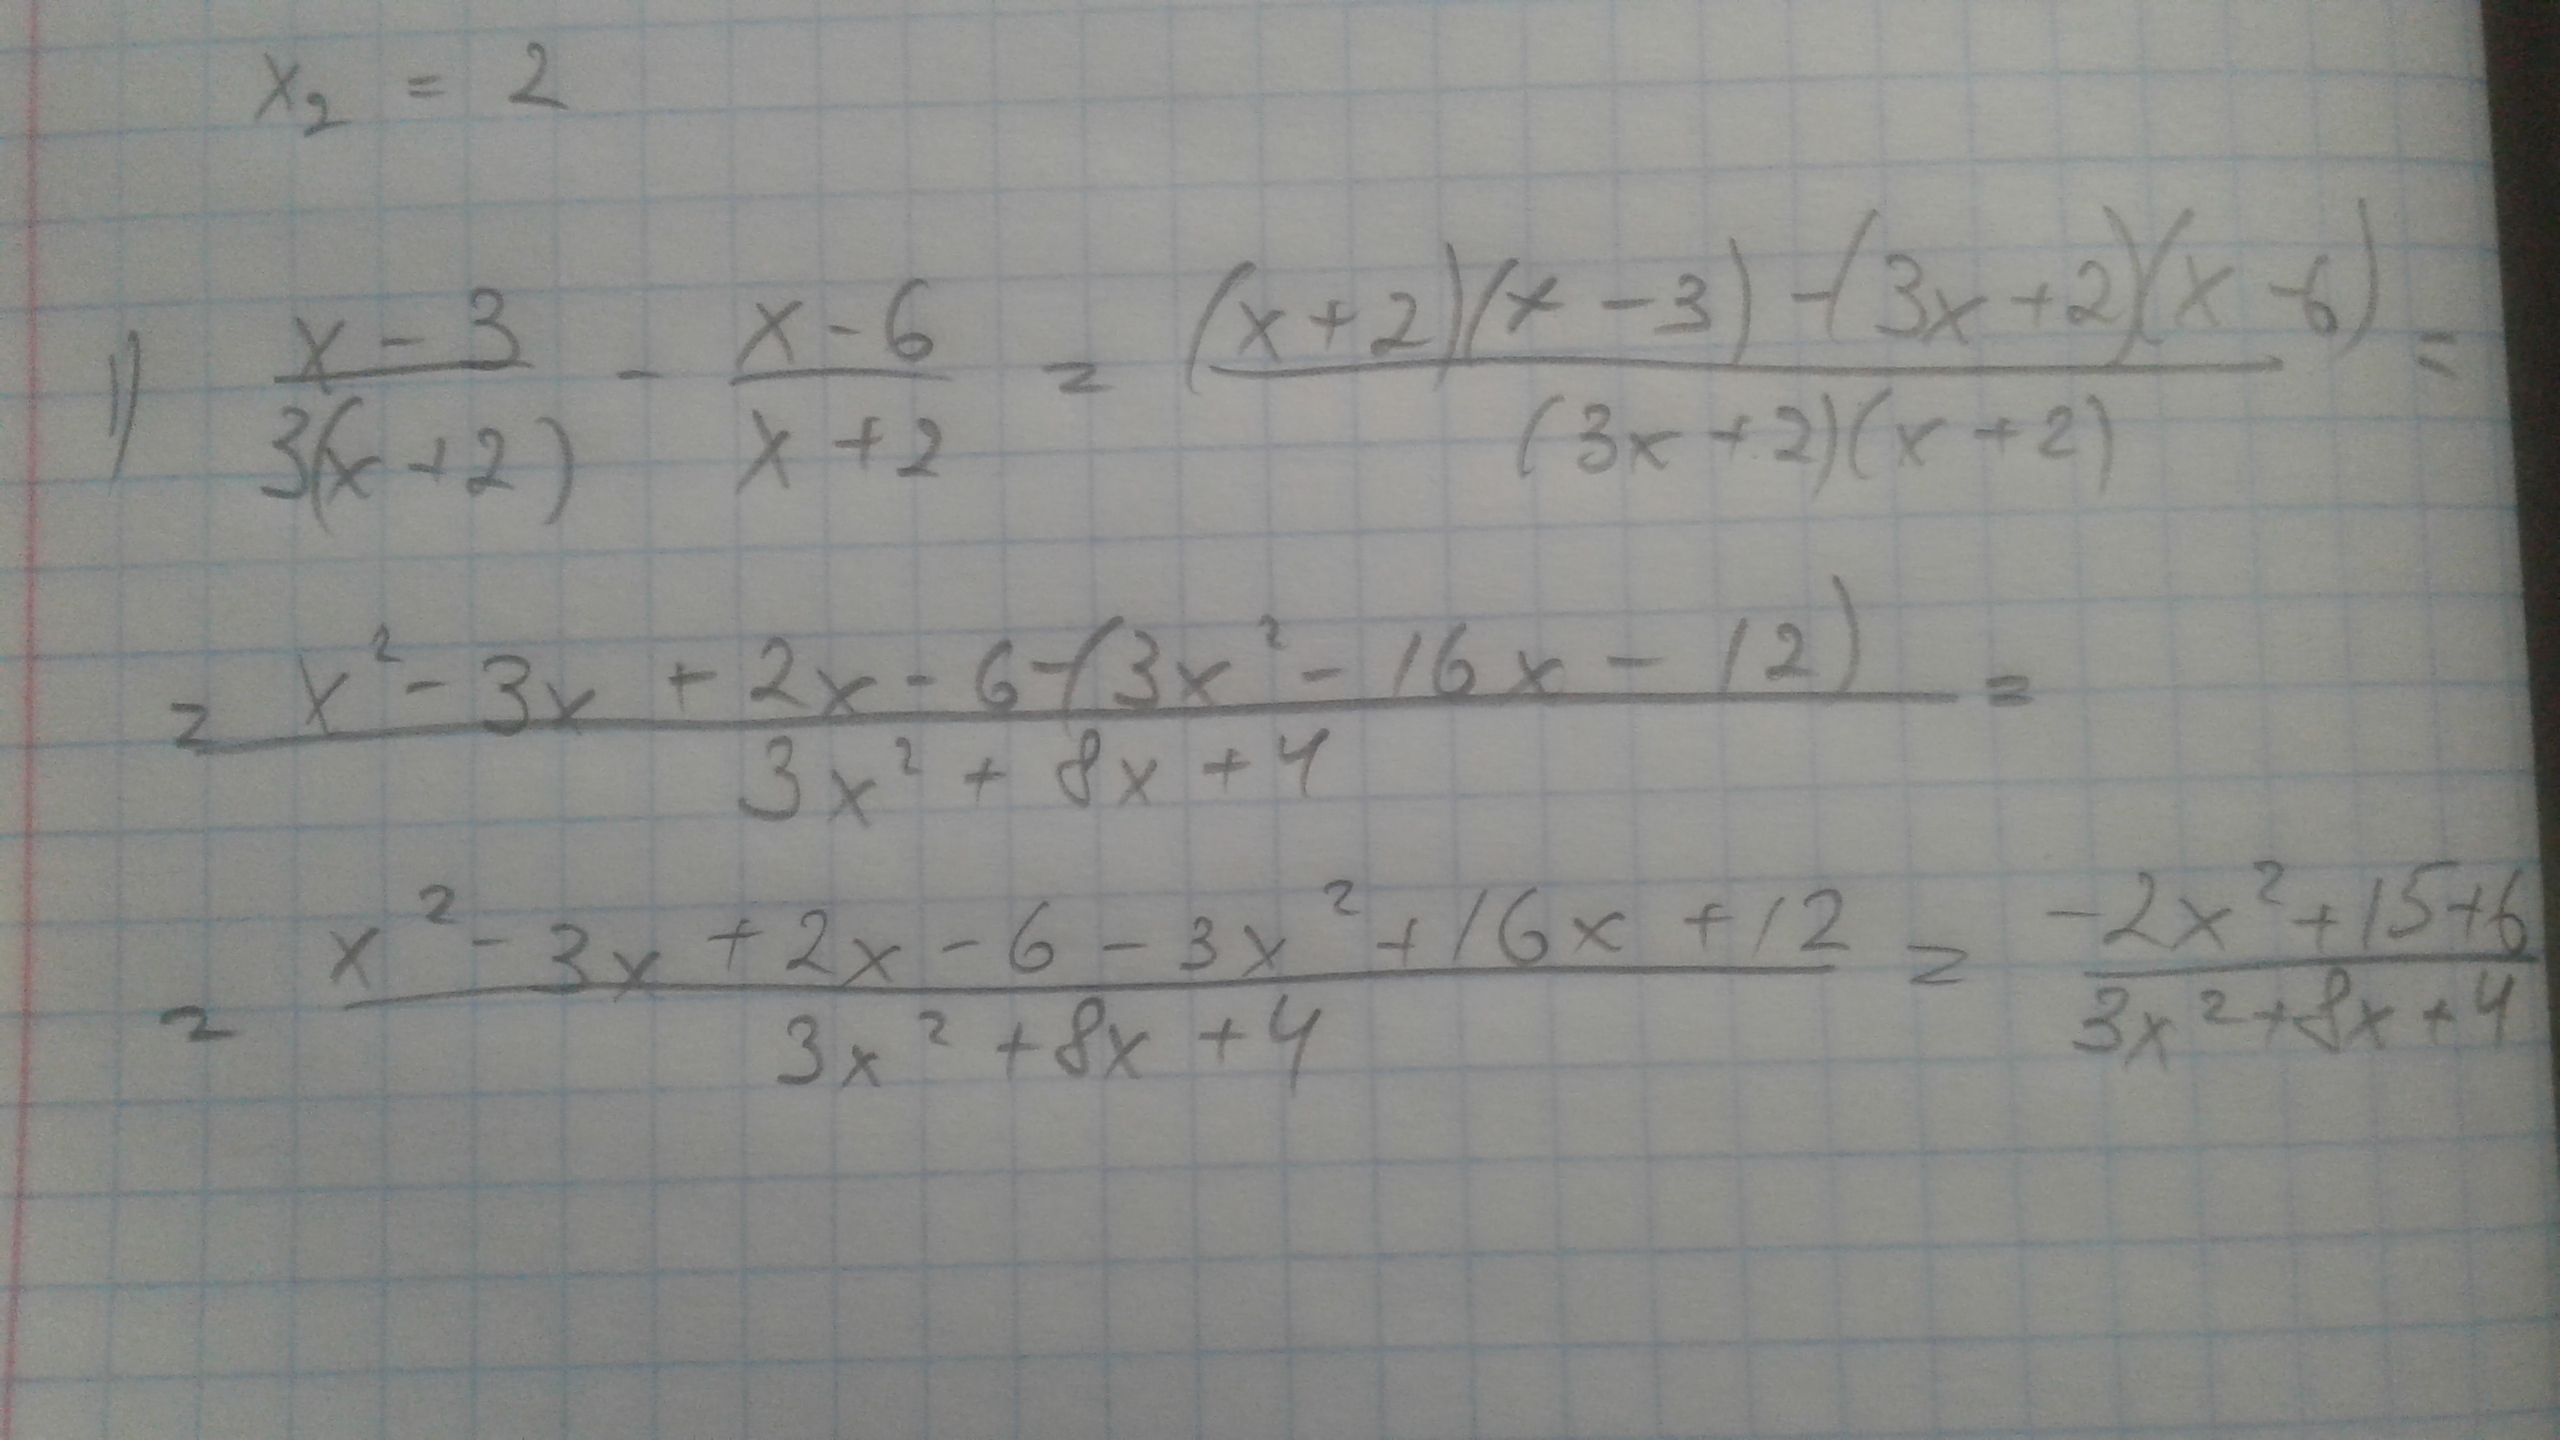 x₂ = 2
1) (x - 3)/(3(x + 2)) - (x - 6)/(x + 2) = ((x + 2)(x - 3) - (3x + 2)(x - 6))/((3x + 2)(x + 2)) =
= (x² - 3x + 2x - 6 - (3x² - 16x - 12))/(3x² + 8x + 4) =
= (x² - 3x + 2x - 6 - 3x² + 16x + 12)/(3x² + 8x + 4) = (-2x² + 15 + 6)/(3x² + 8x + 4)